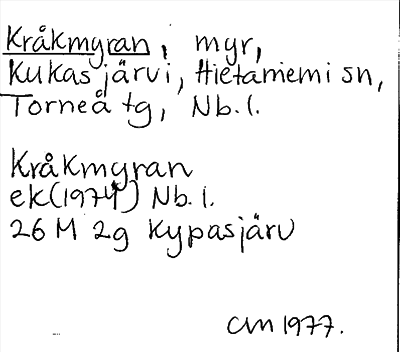 Kråkmyran, myr,
Kukasjärvi, Hietaniemi sn,
Torneå tg, Nb.l.
Kråkmyran
ek(1974) Nb.l.
26 M 2g Kypasjärv
CM 1977.